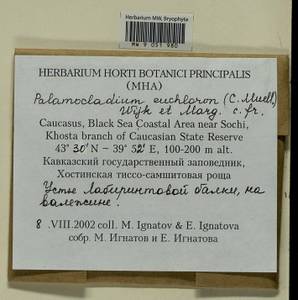 Herbarium MW, Bryophyte
MW 9 051 980
HERBARIUM HORTI BOTANICI PRINCIPALIS
(MHA)
Palamocladium euchloron (C. Muell.)
Wijk et Marg. c. fr.
Caucasus, Black Sea Coastal Area near Sochi,
Khosta branch of Caucasian State Reserve
43° 30' N – 39° 52' E, 100-200 m alt.
Кавказский государственный заповедник,
Хостинская тиссо-самшитовая роща
Устье Лабиринтовой балки, на
валежине.
8 .VIII.2002 coll. M. Ignatov & E. Ignatova
собр. М. Игнатов и Е. Игнатова